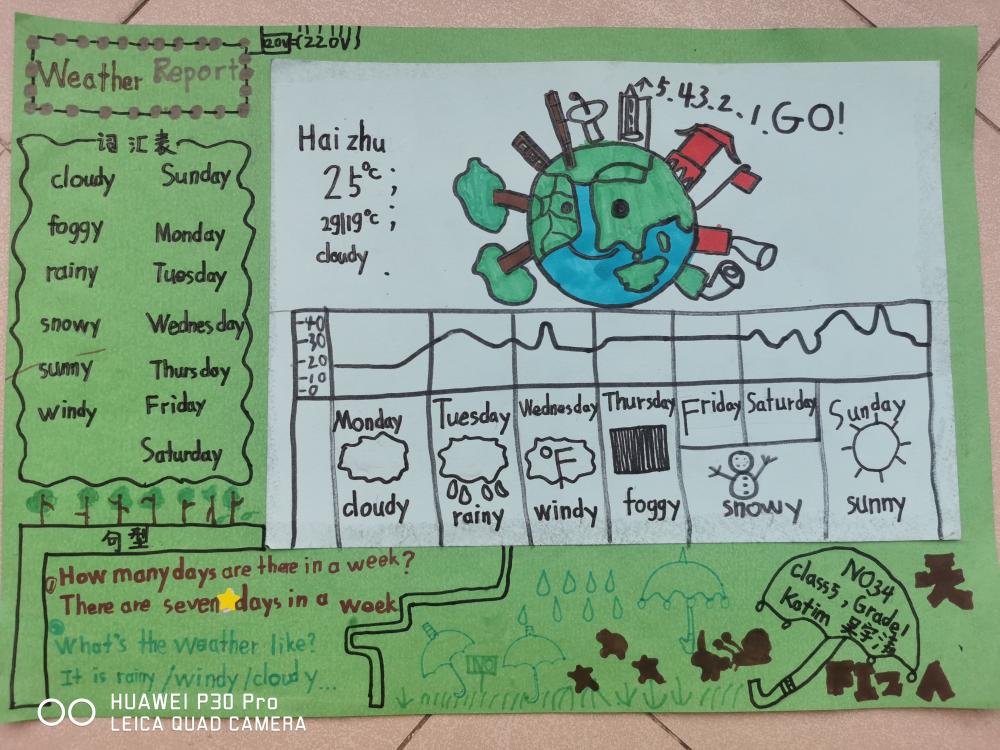 20V (220V)
Weather Report
词汇表
cloudy Sunday
foggy Monday
rainy Tuesday
snowy Wednesday
sunny Thursday
windy Friday
Saturday
句型
How many days are there in a week?
There are seven days in a week
What's the weather like?
It is rainy/windy/cloudy...
Hai zhu
25°C;
29|19°C;
cloudy.
5.43.2.1.GO!
-40
-30
-20
-10
-0
Monday Tuesday Wednesday Thursday Friday Saturday Sunday
°F
cloudy rainy windy foggy snowy sunny
NO
NO34
Class5, Grade1
Katim
天
HUAWEI P30 Pro
LEICA QUAD CAMERA